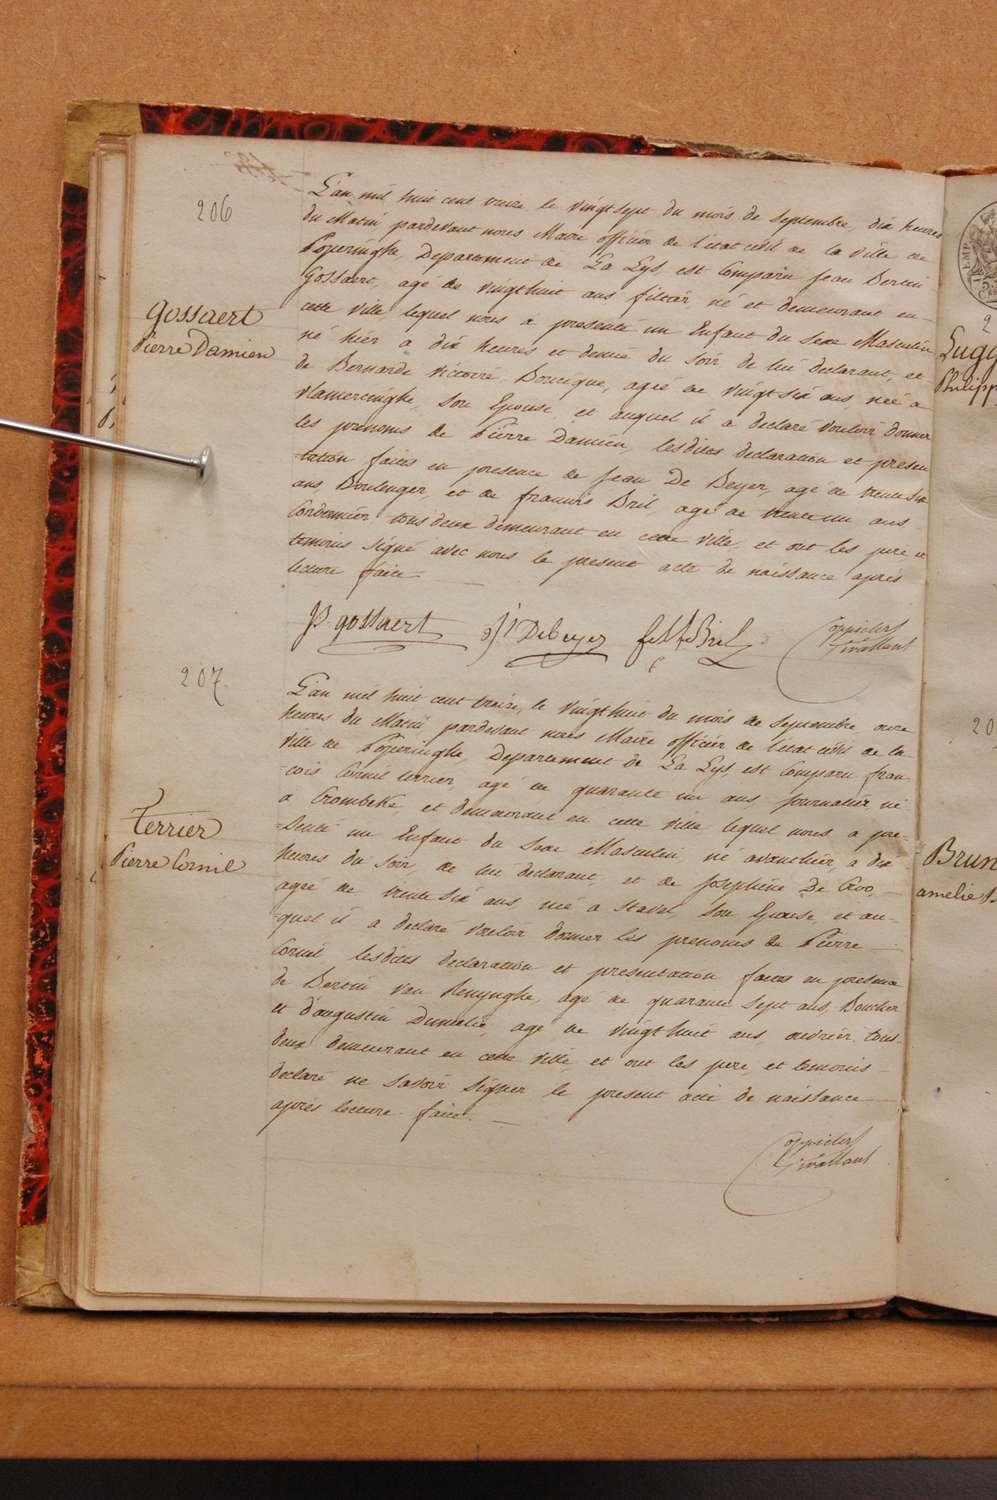 206
Gossaert
Pierre Damien
L'an mil huit cent treize le vingt sept du mois de septembre, dix heures
du Matin pardevant nous Maire officier de l'état civil de la ville de
Poperinghe, Departement de La Lys, est Comparu Jean Bertin
Gossaert, agé de vingthuit ans filtier, né et demeurant en
cette ville, lequel nous a presenté un Enfant du sexe Masculin
né hier a dix heures et demie du soir de lui declarant, et
de Bernarde victoire Doucique, agée de vingt six ans, née a
vlamertinghe, son Epouse, et auquel il a declaré vouloir donner
les prenoms de Pierre Damien, lesdites declaration et presen
-tation faites en presence de Jean De Beyer, agé de trente six
ans Boulenger, et de francois Bril agé de trente un ans
Cordonnier tous deux demeurant en cette ville, et ont les pere et
temoins signé avec nous le present acte de naissance après
lecture faite
gossaert Debeyer Bril
207
Terrier
Pierre Cornil
L'an mil huit cent treize, le vingthuit du mois de septembre onze
heures du Matin pardevant nous Maire officier de l'état civil de la
ville de Poperinghe, Departement de La Lys, est Comparu fran
-cois Cornil terrier, agé de quarante un ans journalier né
a Crombeke, et demeurant en cette ville lequel nous a pre-
-senté un Enfant du sexe Masculin, né avanthier, a dix
heures du soir, de lui declarant, et de Josephine De Croo,
agée de trente six ans née a stavel, son Epouse, et au-
-quel il a declaré vouloir donner les prenoms de Pierre
Cornil lesdites declaration et presentation faites en presence
de Bertin Van Renynghe, agé de quarante sept ans, Boucher
et d'augustin Dumelie, agé de vingthuit ans, ouvrier, tous
deux demeurant en cette ville, et ont les pere et temoins
declaré ne savoir signer le present acte de naissance
après lecture faite.
2
Philipp
20
Brun
amelie